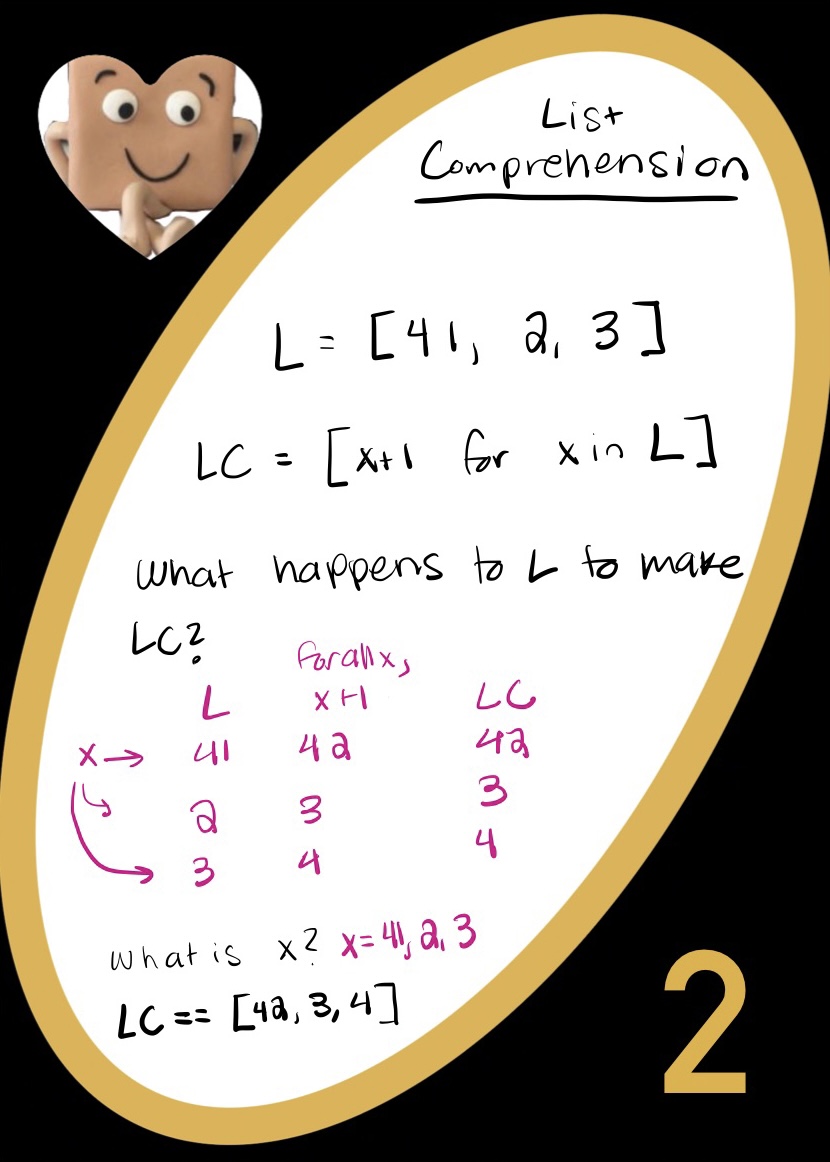 List
Comprehension
L = [41, 2, 3]
LC = [x+1 for x in L]
What happens to L to make
LC?
for all x,
L x+1 LC
x→ 41 42 42
2 3 3
3 4 4
What is x? x=41, 2, 3
LC == [42, 3, 4]
2